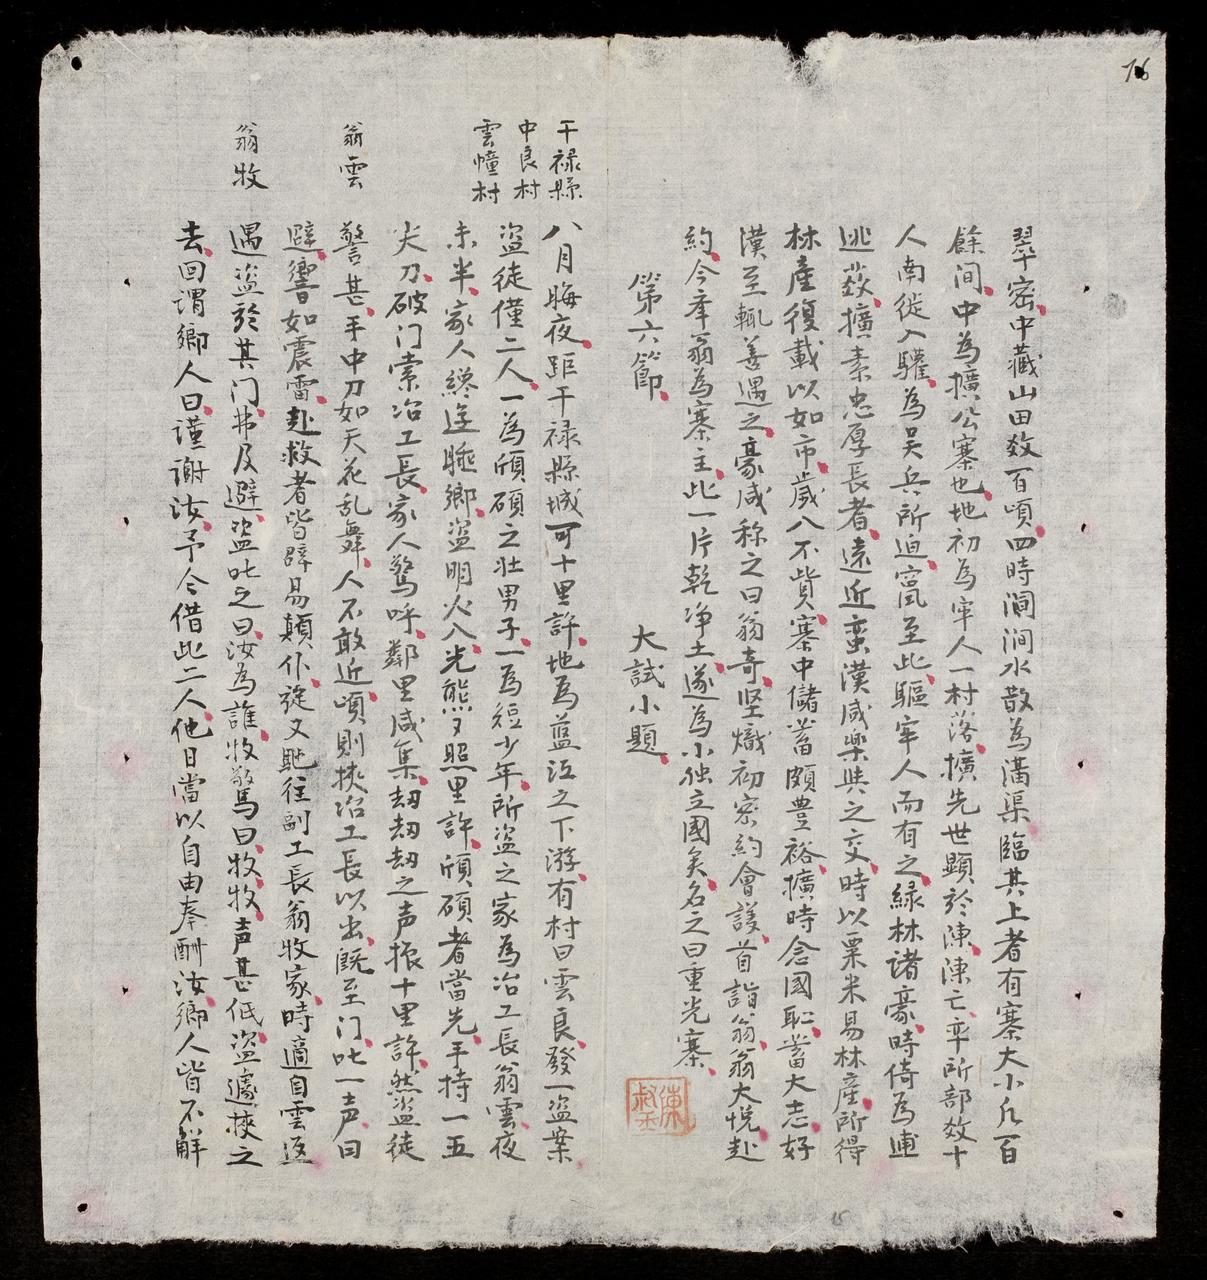 76
翠密中藏山田数百頃四時澗澗水散為溝渠臨其上者有寨大小凡百
餘间中為擴公寨也地初為牢人一村落擴先世顯於陳陳亡率所部数十
人南徙入驩為吴兵所迫竄至此驅牢人而有之緑林诸豪時倚為逋
逃薮擴素忠厚長者遠近蛮漢咸樂與之交時以粟米易林產所得
林產復載以如市歲入不貲寨中儲蓄頗豊裕擴時念國恥蓄大志好
漢至輒善遇之豪咸称之曰翁奇坚熾初密約會護首詣翁翁大悦赴
約今奉翁為寨主此一片乾净土遂為小独立國矣名之曰重光寨
陳叔玉
第六節
大試小題
干禄縣
中良村
雲幢村
八月晦夜距干禄縣城可十里許地為蓝江之下游有村曰雲良發一盗案
盗徒僅二人一為頎碩之壮男子一為短少年所盗之家為冶工長翁雲夜
未半家人纔迳睡鄉盗明火入光熊又照里許頎碩者當先手持一五
尖刀破门索冶工長家人驚呼鄰里咸集刧刧刧之声振十里許然盗徒
翁雲
警甚手中刀如天花乱舞人不敢近頃則挟冶工長以出既至门叱一声曰
避響如震雷赴救者皆辟易顛仆旋又馳往副工長翁牧家時適自雲返
翁牧
遇盗於其门弗及避盗叱之曰汝為誰牧驚曰牧牧声甚低盗遽挾之
去回谓鄉人曰謹謝汝予今借此二人他日當以自由奉酬汝鄉人皆不解